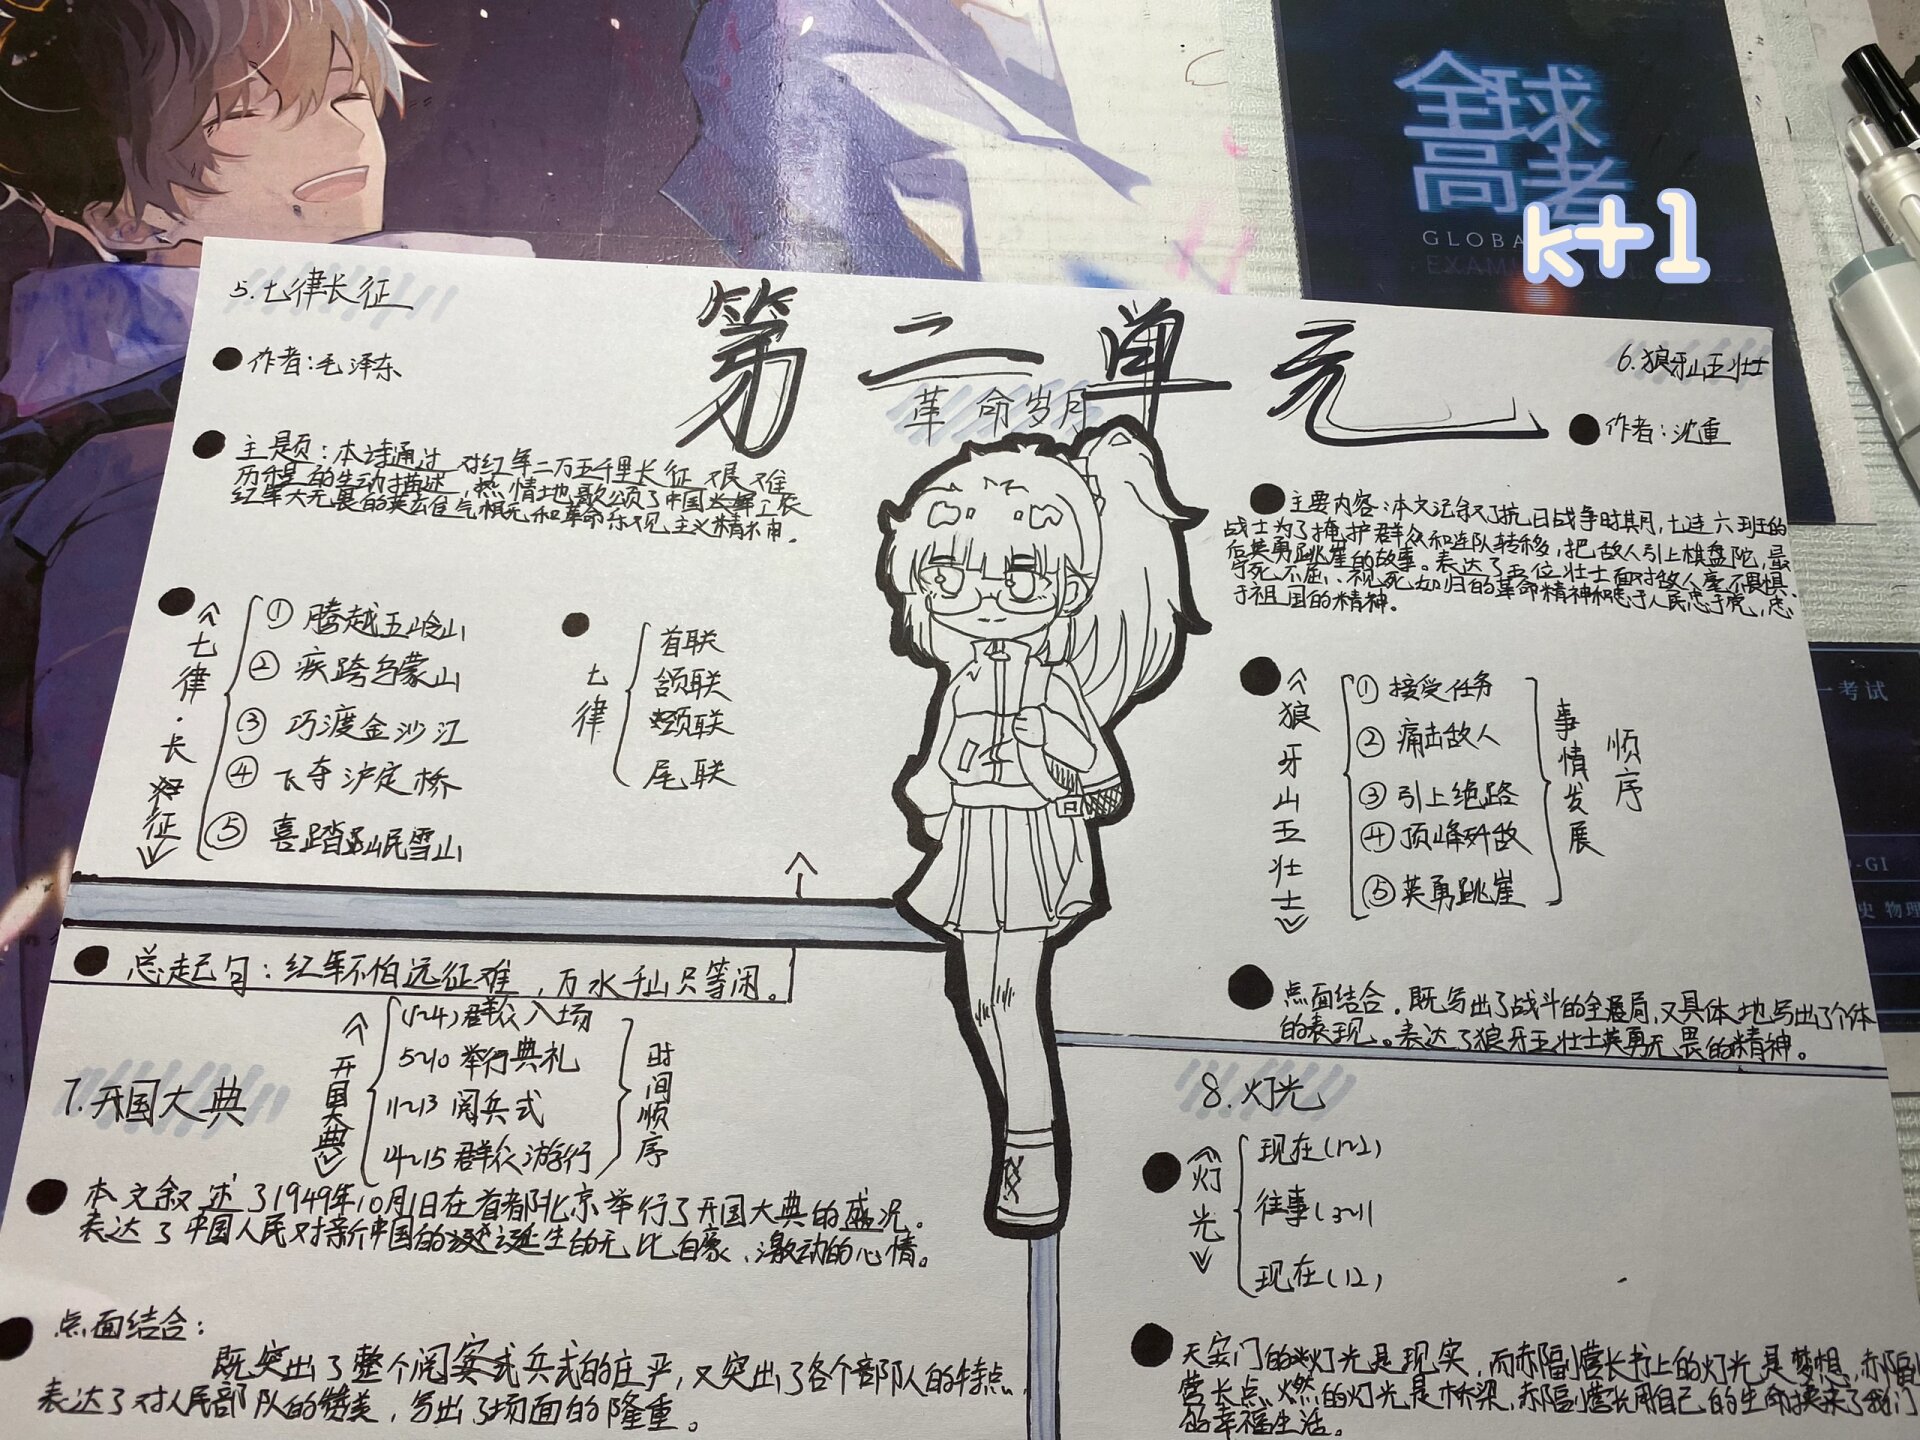 全球
高考
GLOBA
EXAM
k+1
一考试
-GI
史 物理
第二单元
革命岁月
5.七律长征
作者:毛泽东
主题:本诗通过 对红军二万五千里长征 艰难
历程 的生动描述,热情地歌颂了中国
红军大无畏的英雄气概和革命乐观主义精神。
《七律·长征》
① 腾越五岭山
② 疾跨乌蒙山
③ 巧渡金沙江
④ 飞夺沪定桥
⑤ 喜踏岷山雪山
七律
首联
颔联
颈联
尾联
总起句:红军不怕远征难,万水千山只等闲。
6.狼牙山五壮士
作者:沈重
主要内容:本文记叙了抗日战争时期,七连六班的
战士为了掩护群众和连队转移,把敌人引上棋盘陀,最
后英勇跳崖的故事。表达了五位壮士面对敌人毫不畏惧、
宁死不屈、视死如归的革命精神和忠于人民忠于党,忠
于祖国的精神。
《狼牙山五壮士》
① 接受任务
② 痛击敌人
③ 引上绝路
④ 顶峰歼敌
⑤ 英勇跳崖
事情发展
顺序
点面结合。既写出了战斗的全局,又具体地写出了个体
的表现。表达了狼牙五壮士英勇无畏的精神。
7.开国大典
《开国大典》
(1~4)群众入场
5~10 举行典礼
11~13 阅兵式
14~15 群众游行
时间顺序
本文叙述了1949年10月1日在首都北京举行了开国大典的盛况。
表达了中国人民对新中国的诞生的无比自豪、激动的心情。
点面结合:
既突出了整个阅兵式的庄严,又突出了各个部队的特点,
表达了对人民部队的赞美,写出了场面的隆重。
8.灯光
《灯光》
现在(1~2)
往事(3~11
现在(12)
天安门的灯光是现实,而郝副营长书上的灯光是梦想,郝副
营长点燃的灯光是桥梁,郝副营长用自己的生命换来了我们
的幸福生活。